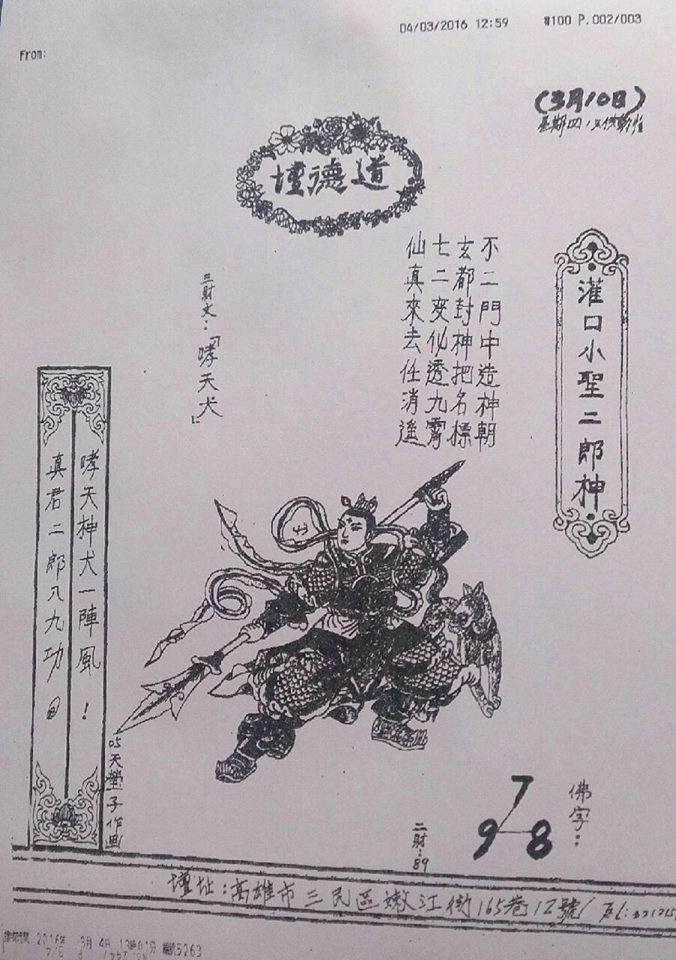 04/03/2016 12:59 #100 P.002/003
From:
(3月10日)
道德壇
灌口小聖二郎神
不二門中造神朝
玄都封神把名標
七二变化透九霄
仙真來去任消遙
三財火：「哮天犬」
哮天神犬一陣風！
真君二郎八九功
05天堂子作画
佛字：
7
9 8
二財：89
壇址：高雄市三民區嫩江街165巷12號
2016年 3月 4日 13時01分 5263